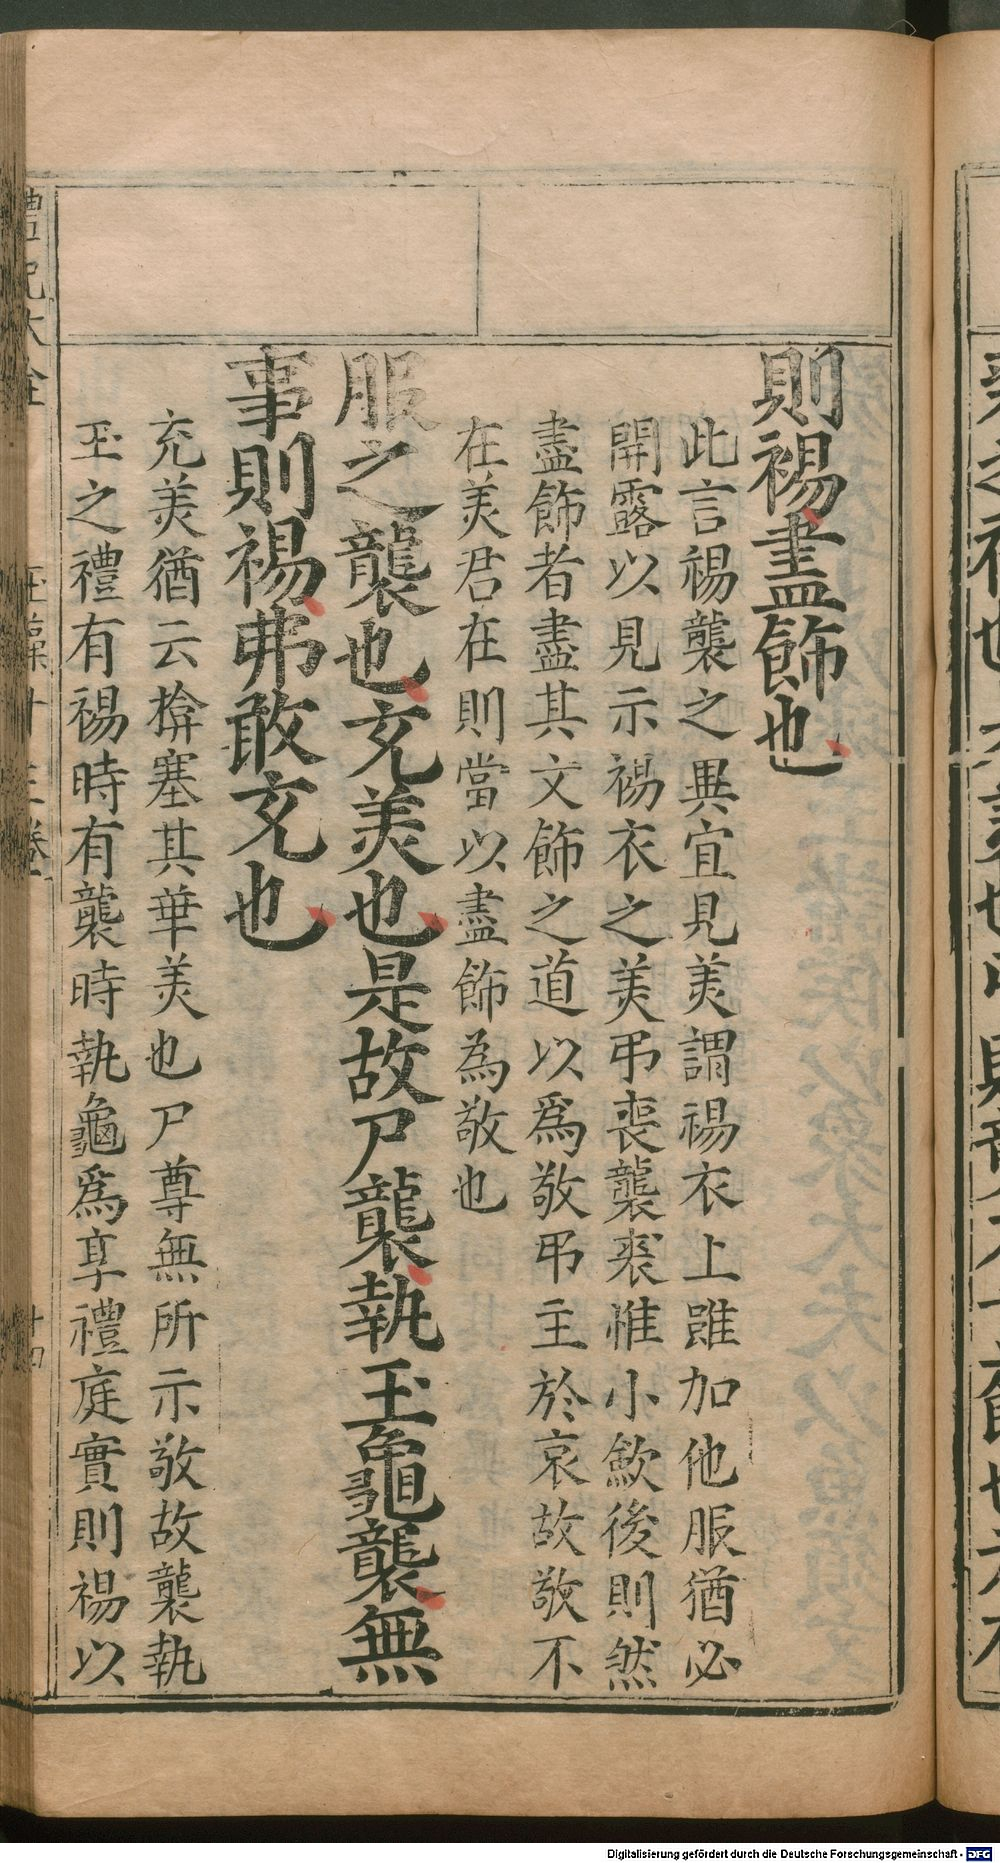 則裼盡飾也
此言裼襲之異宜見美謂裼衣上雖加他服猶必
開露以見示裼衣之美弔喪襲裘惟小歛後則然
盡飾者盡其文飾之道以為敬弔主於哀故敬不
在美君在則當以盡飾為敬也
服之襲也充美也是故尸襲執玉龜襲無
事則裼弗敢充也
充美猶云揜塞其華美也尸尊無所示敬故襲執
玉之禮有裼時有襲時執龜為享禮庭實則裼以
禮記大全 玉藻十三卷 十四
Digitalisierung gefördert durch die Deutsche Forschungsgemeinschaft - DFG